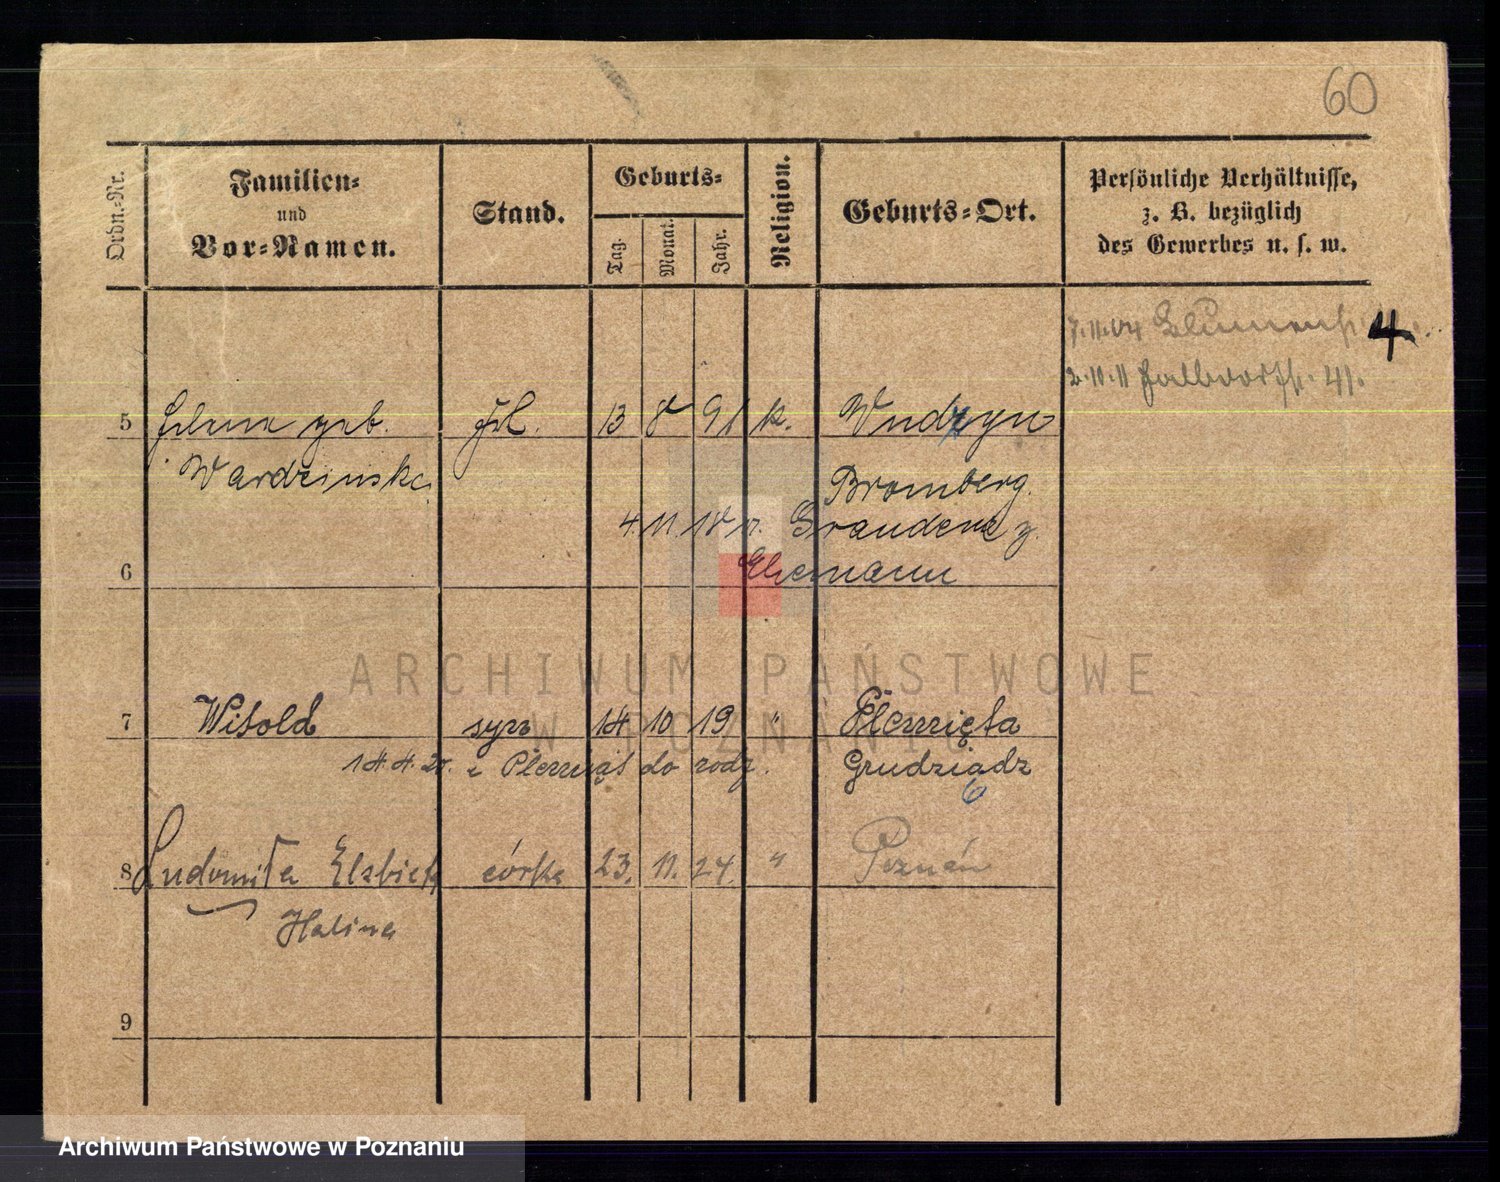 60
Ordn.-Nr.
Familien-
und
Vor-Namen.
Stand.
Geburts-
Tag.
Monat.
Jahr.
Religion.
Geburts-Ort.
Persönliche Verhältnisse,
z. B. bezüglich
des Gewerbes u. s. w.
7.11.04 Blumenstr. 4
2.10.11 41.
5 Helene geb. 13 8 91 k. Wudzyn
Wardzinska Bromberg
4. 11. 18 n. Graudenz z.
6 Ehemann
7 Witold syn 14 10 19 " Plemięta
14.4.20. z Plemiąt do rodz. Grudziądz
6
8 Ludomiła Elzbieta córka 23. 11. 24. " Poznań
Halina
9
ARCHIWUM PAŃSTWOWE
W POZNANIU
Archiwum Państwowe w Poznaniu